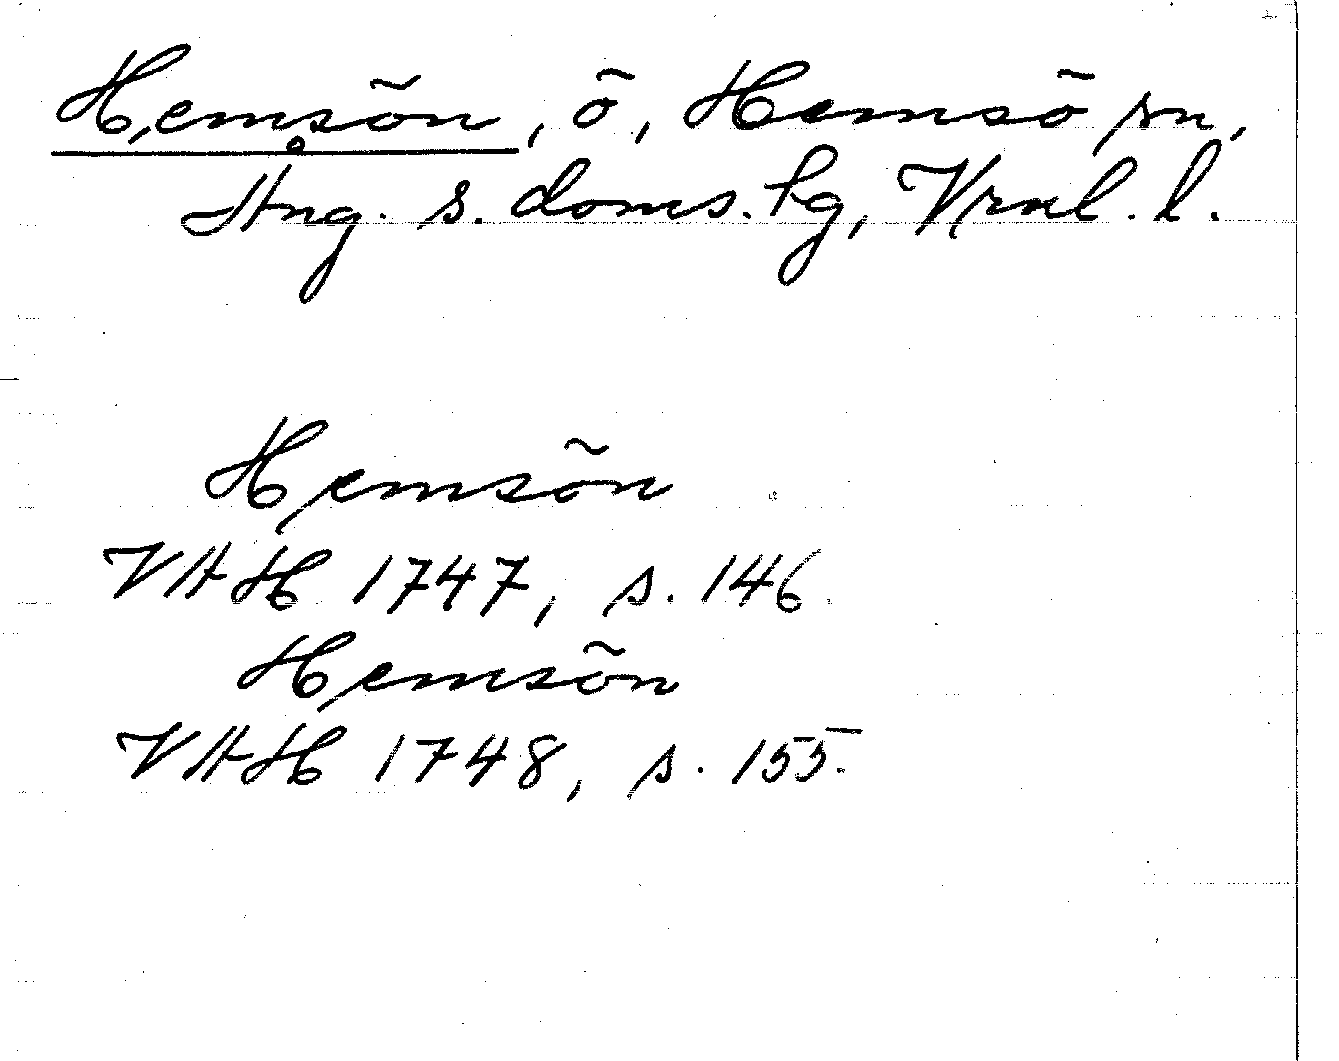 Hemsön, ö, Hemsö sn,
Ång. s. doms. lg, Vrnl. l.
Hemsön
VAH 1747, s. 146.
Hemsön
VAH 1748, s. 155.